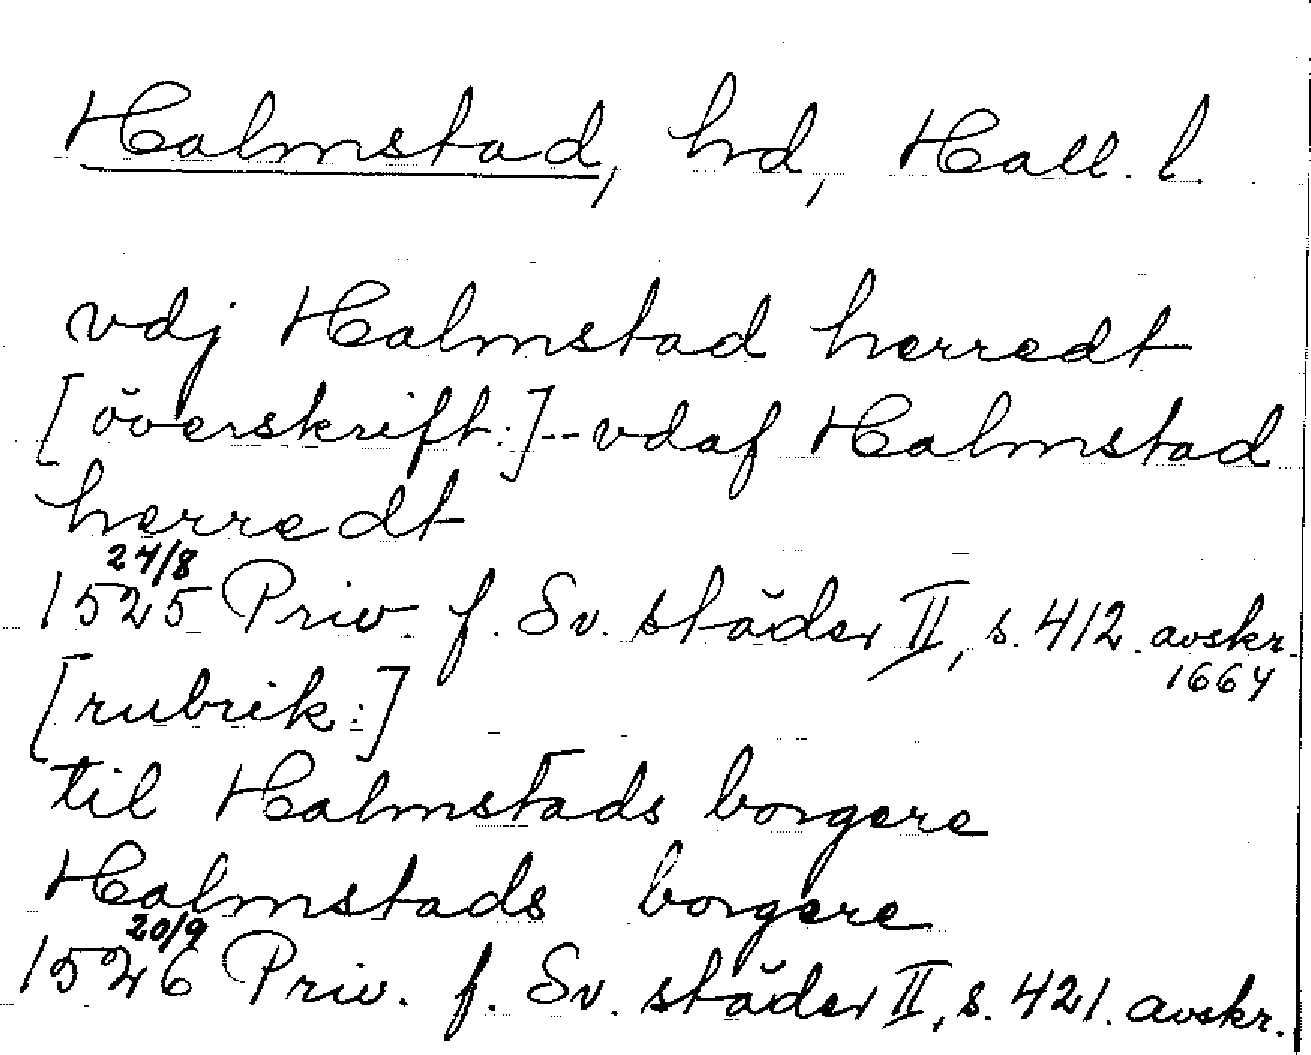 Halmstad, hd, Hall. l.
vdj Halmstad herredt
[överskrift:]--vdaf Halmstad
herredt
24/8
1525 Priv. f. Sv. städer II, s. 412. avskr.
1664
[rubrik:]
til Halmstads borgere
Halmstads borgere
20/9
1526 Priv. f. Sv. städer II, s. 421. avskr.